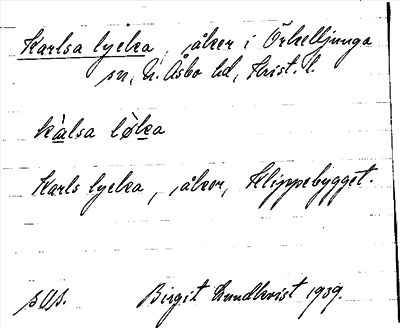 Karlsa lycka, åker i Örkelljunga
sn, N. Åsbo hd, Krist. l.
kàlsa løka
Karls lycka, åker, Klippebygget.
Birgit Lundkvist 1939.